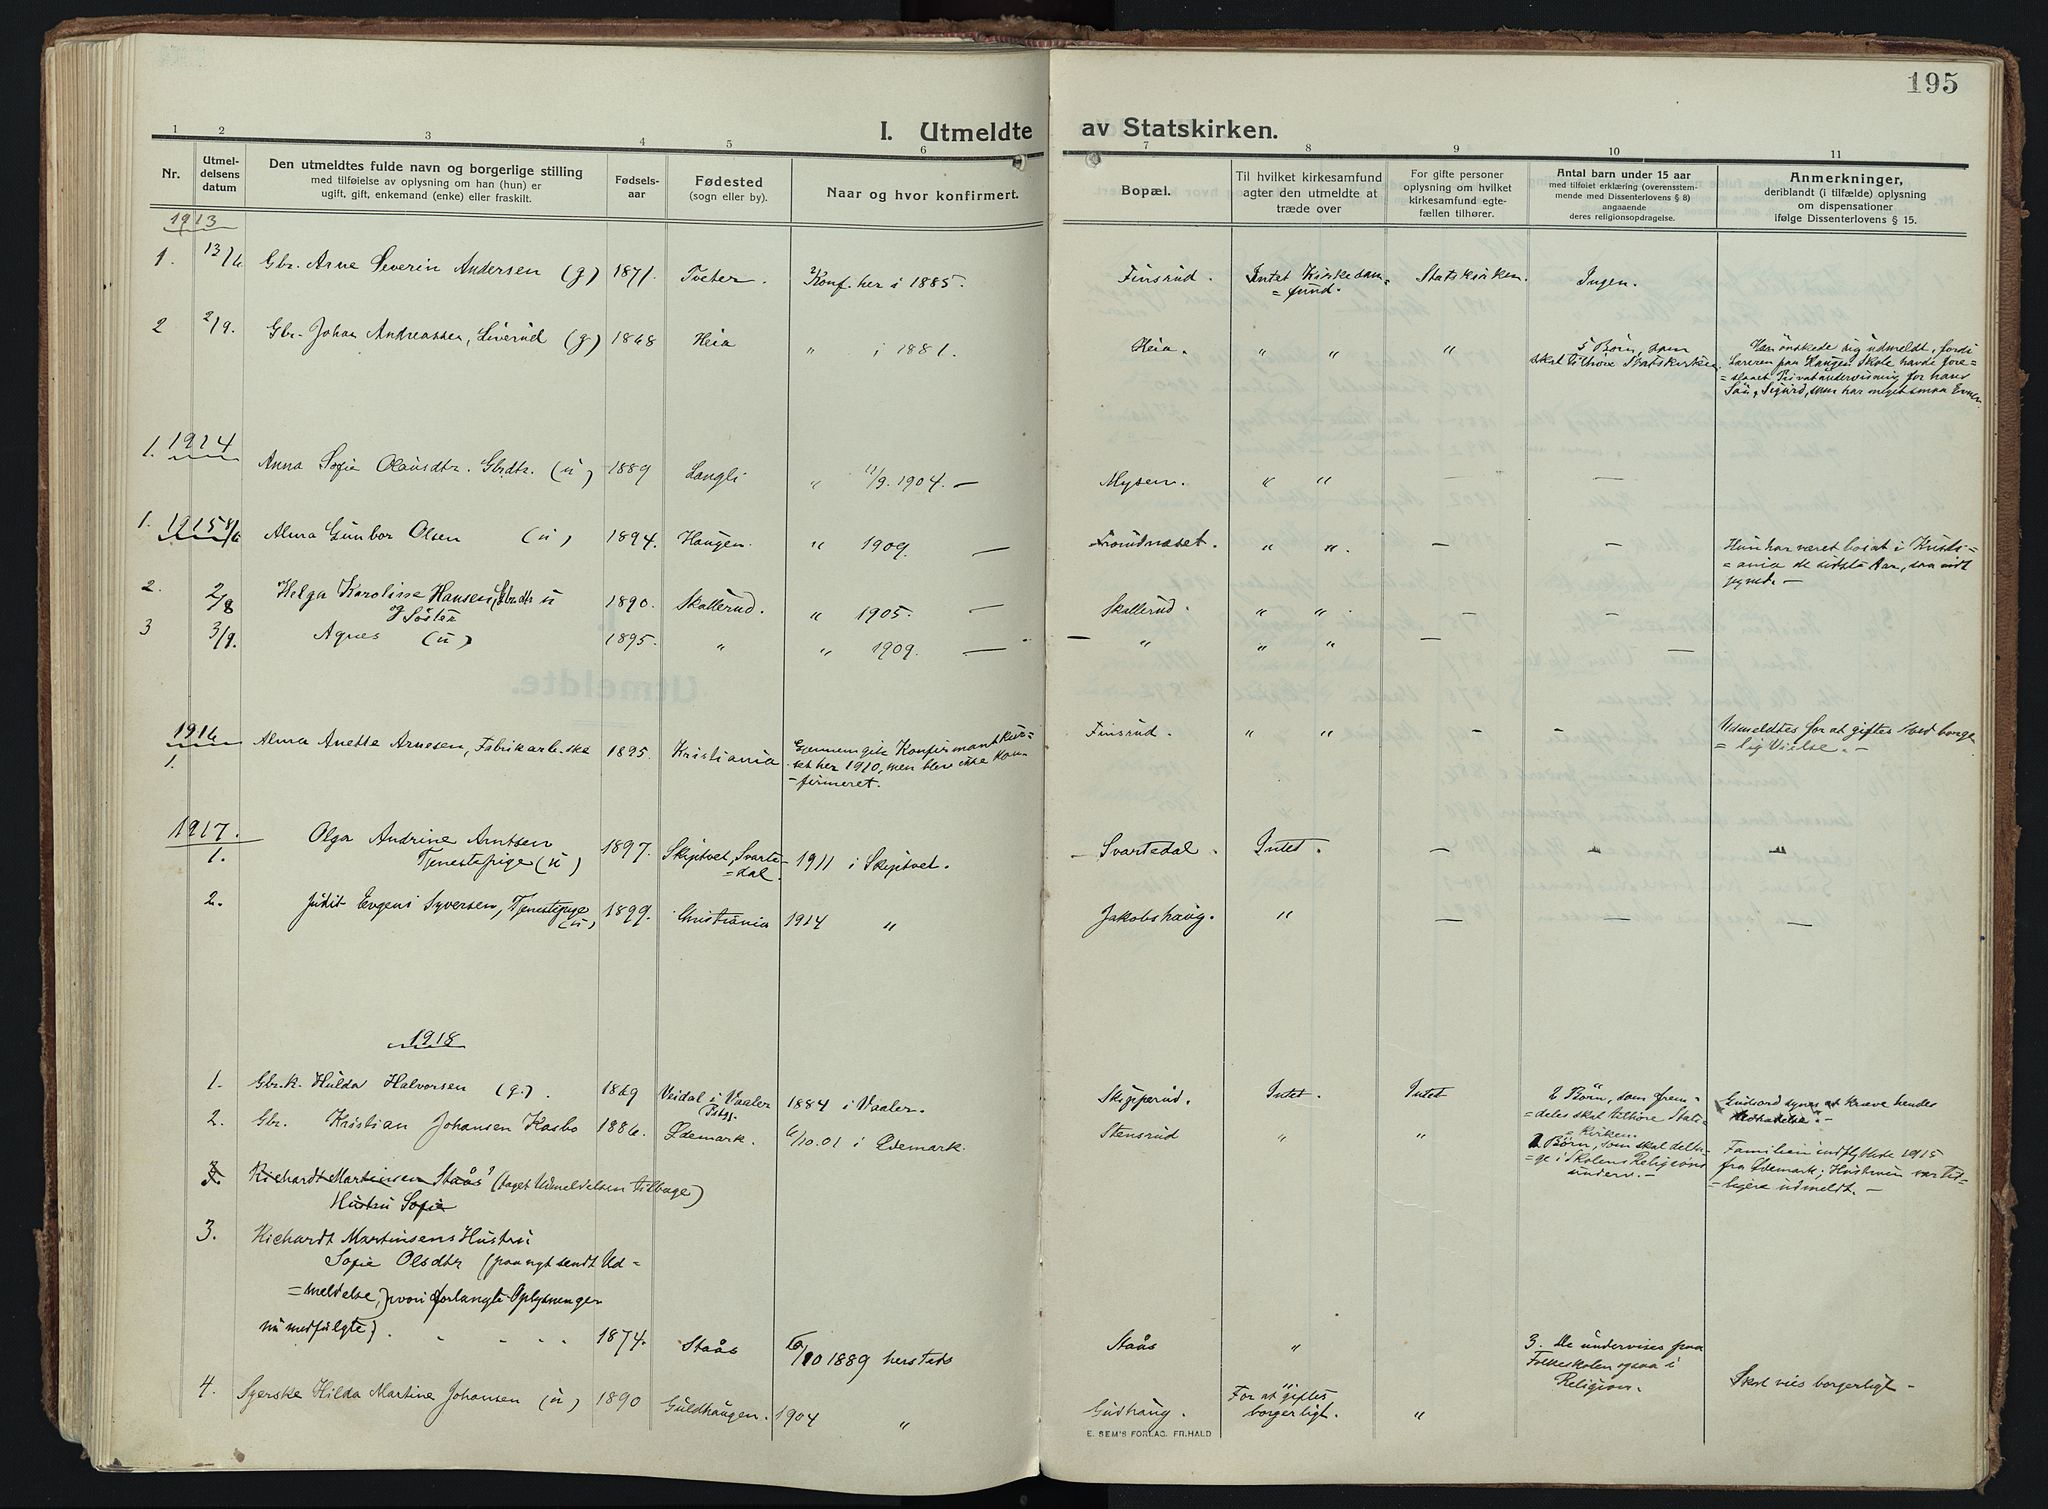 195
I. Utmeldte av Statskirken.
1 2 3 4 5 6 7 8 9 10 11
Nr.
Utmel-
delsens
datum
Den utmeldtes fulde navn og borgerlige stilling
med tilføielse av oplysning om han (hun) er
ugift, gift, enkemand (enke) eller fraskilt.
Fødsels-
aar
Fødested
(sogn eller by).
Naar og hvor konfirmert.
Bopæl.
Til hvilket kirkesamfund
agter den utmeldte at
træde over
For gifte personer
oplysning om hvilket
kirkesamfund egte-
fællen tilhører.
Antal barn under 15 aar
med tilføiet erklæring (overensstem-
mende med Dissenterlovens § 8)
angaaende
deres religionsopdragelse.
Anmerkninger,
deriblandt (i tilfælde) oplysning
om dispensationer
ifølge Dissenterlovens § 15.
1913
1. 13/6 Gbr. Arne Severin Andersen (g) 1871. Tveter. Konf. her i 1885. Finsrud. Intet Kirkesam=
=fund. Statskirken. Ingen.
2 2/9. Gbr. Johan Andreassen, Liverud (g) 1868 Heia " i 1881. Heia. " " " 5 Börn, som
skal tilhöre Statskirken.
Han önskede sig udmeldt, fordi
Læreren paa Haugen Skole havde fore=
=slaaet Privatundervisning for hans
Sön, Sigurd, som har meget smaa Evner.
1. 1914
Anna Sofie Olausdtr. Gbrdtr. (u) 1889 Langli " 11/9. 1904. — Mysen. " " — —
1. 1915 8/6 Alma Gunbor Olsen (u) 1894. Haugen. " 1909. — " ". — —
Hun har været bosat i Kristi=
=ania de sidste Aar, saa vidt
vides. —
2. 2/8 Helga Karoline Hansen, Gbrdtr u 1890. Skallerud. " 1905. — Skallerud. " " — — —
og Söster
3 3/9. Agnes (u) 1895. " " 1909. — — " " " — — —
1916
1. Alma Anette Arnesen, Fabrikarb.ske 1895. Kristiania Gjennemgik Konfirmantkur=
set her 1910, men blev ikke Kon=
=firmeret. Finsrud. " " — —
Udmeldtes for at giftes ved borger=
=lig Vielse. —
1917.
1. Olga Andrine Arntsen
Tjenestepige (u) 1897. Skiptvet, Svarte=
=dal. 1911 i Skiptvet. — Svartedal. Intet. — — —
2. Judit Evgeni Syversen, Tjenestepige
(u) 1899. Christiania 1914 " Jakobshaug. " — — —
1918
1. Gbr.k. Hulda Halvorsen (g.) 1869 Veidal i Vaaler
Pstgj. 1884 i Vaaler. Skipperud. Intet. Intet 2 Börn, som frem=
=deles skal tilhöre Stats=
=kirken.
Gudsord synes at kræve hendes
Udtrædelse. —
2. Gbr. Kristian Johansen Kasbo 1886. Ødemark. 6/10.01 i Ødemark. Stensrud " " 2 Börn, som skal delta=
=ge i Skolens Religions
underv. —
Familien indflyttede 1915
fra Ødemark; Hustruen var tid=
=ligere udmeldt. —
3. Richardt Martinsen Staås' (taget Udmeldelsen tilbage)
Hustru Sofie
3. Richardt Martinsens Hustru
Sofie Olsdtr (paa nyt sendt Ud=
=meldelse, hvori forlangte Oplysninger
nu medfulgte). 1874. Staås /10 1889 hersteds Staås " 3. De undervises paa
Folkeskolen ogsaa i
Religion.
4. Syerske Hilda Martine Johansen (u) 1890 Guldhaugen. 1904 " Gudhaug. For at giftes
borgerligt. " Skal vies borgerligt —
E. SEM'S FORLAG. FR.HALD